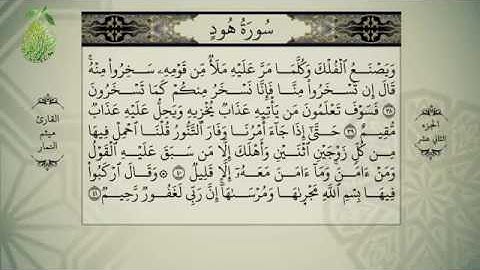 سُورَةُ هُودٍ
وَيَصْنَعُ ٱلْفُلْكَ وَكُلَّمَا مَرَّ عَلَيْهِ مَلَأٌ مِّن قَوْمِهِۦ سَخِرُوا۟ مِنْهُ ۚ
قَالَ إِن تَسْخَرُوا۟ مِنَّا فَإِنَّا نَسْخَرُ مِنكُمْ كَمَا تَسْخَرُونَ
٣٨ فَسَوْفَ تَعْلَمُونَ مَن يَأْتِيهِ عَذَابٌ يُخْزِيهِ وَيَحِلُّ عَلَيْهِ عَذَابٌ
مُّقِيمٌ ٣٩ حَتَّىٰٓ إِذَا جَآءَ أَمْرُنَا وَفَارَ ٱلتَّنُّورُ قُلْنَا ٱحْمِلْ فِيهَا
مِن كُلٍّ زَوْجَيْنِ ٱثْنَيْنِ وَأَهْلَكَ إِلَّا مَن سَبَقَ عَلَيْهِ ٱلْقَوْلُ
وَمَنْ ءَامَنَ ۚ وَمَآ ءَامَنَ مَعَهُۥٓ إِلَّا قَلِيلٌ ٤٠ ۞ وَقَالَ ٱرْكَبُوا۟
فِيهَا بِسْمِ ٱللَّهِ مَجْر۪ىٰهَا وَمُرْسَىٰهَآ ۚ إِنَّ رَبِّى لَغَفُورٌ رَّحِيمٌ ٤١
الجزء
الثاني عشر
القارئ
ميثم
التمار